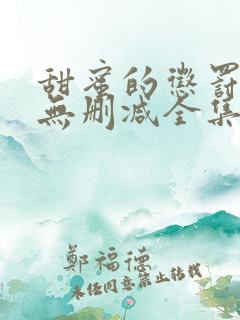 甜蜜的懲罰
無刪减全集
鄭福德
未经同意禁止转载